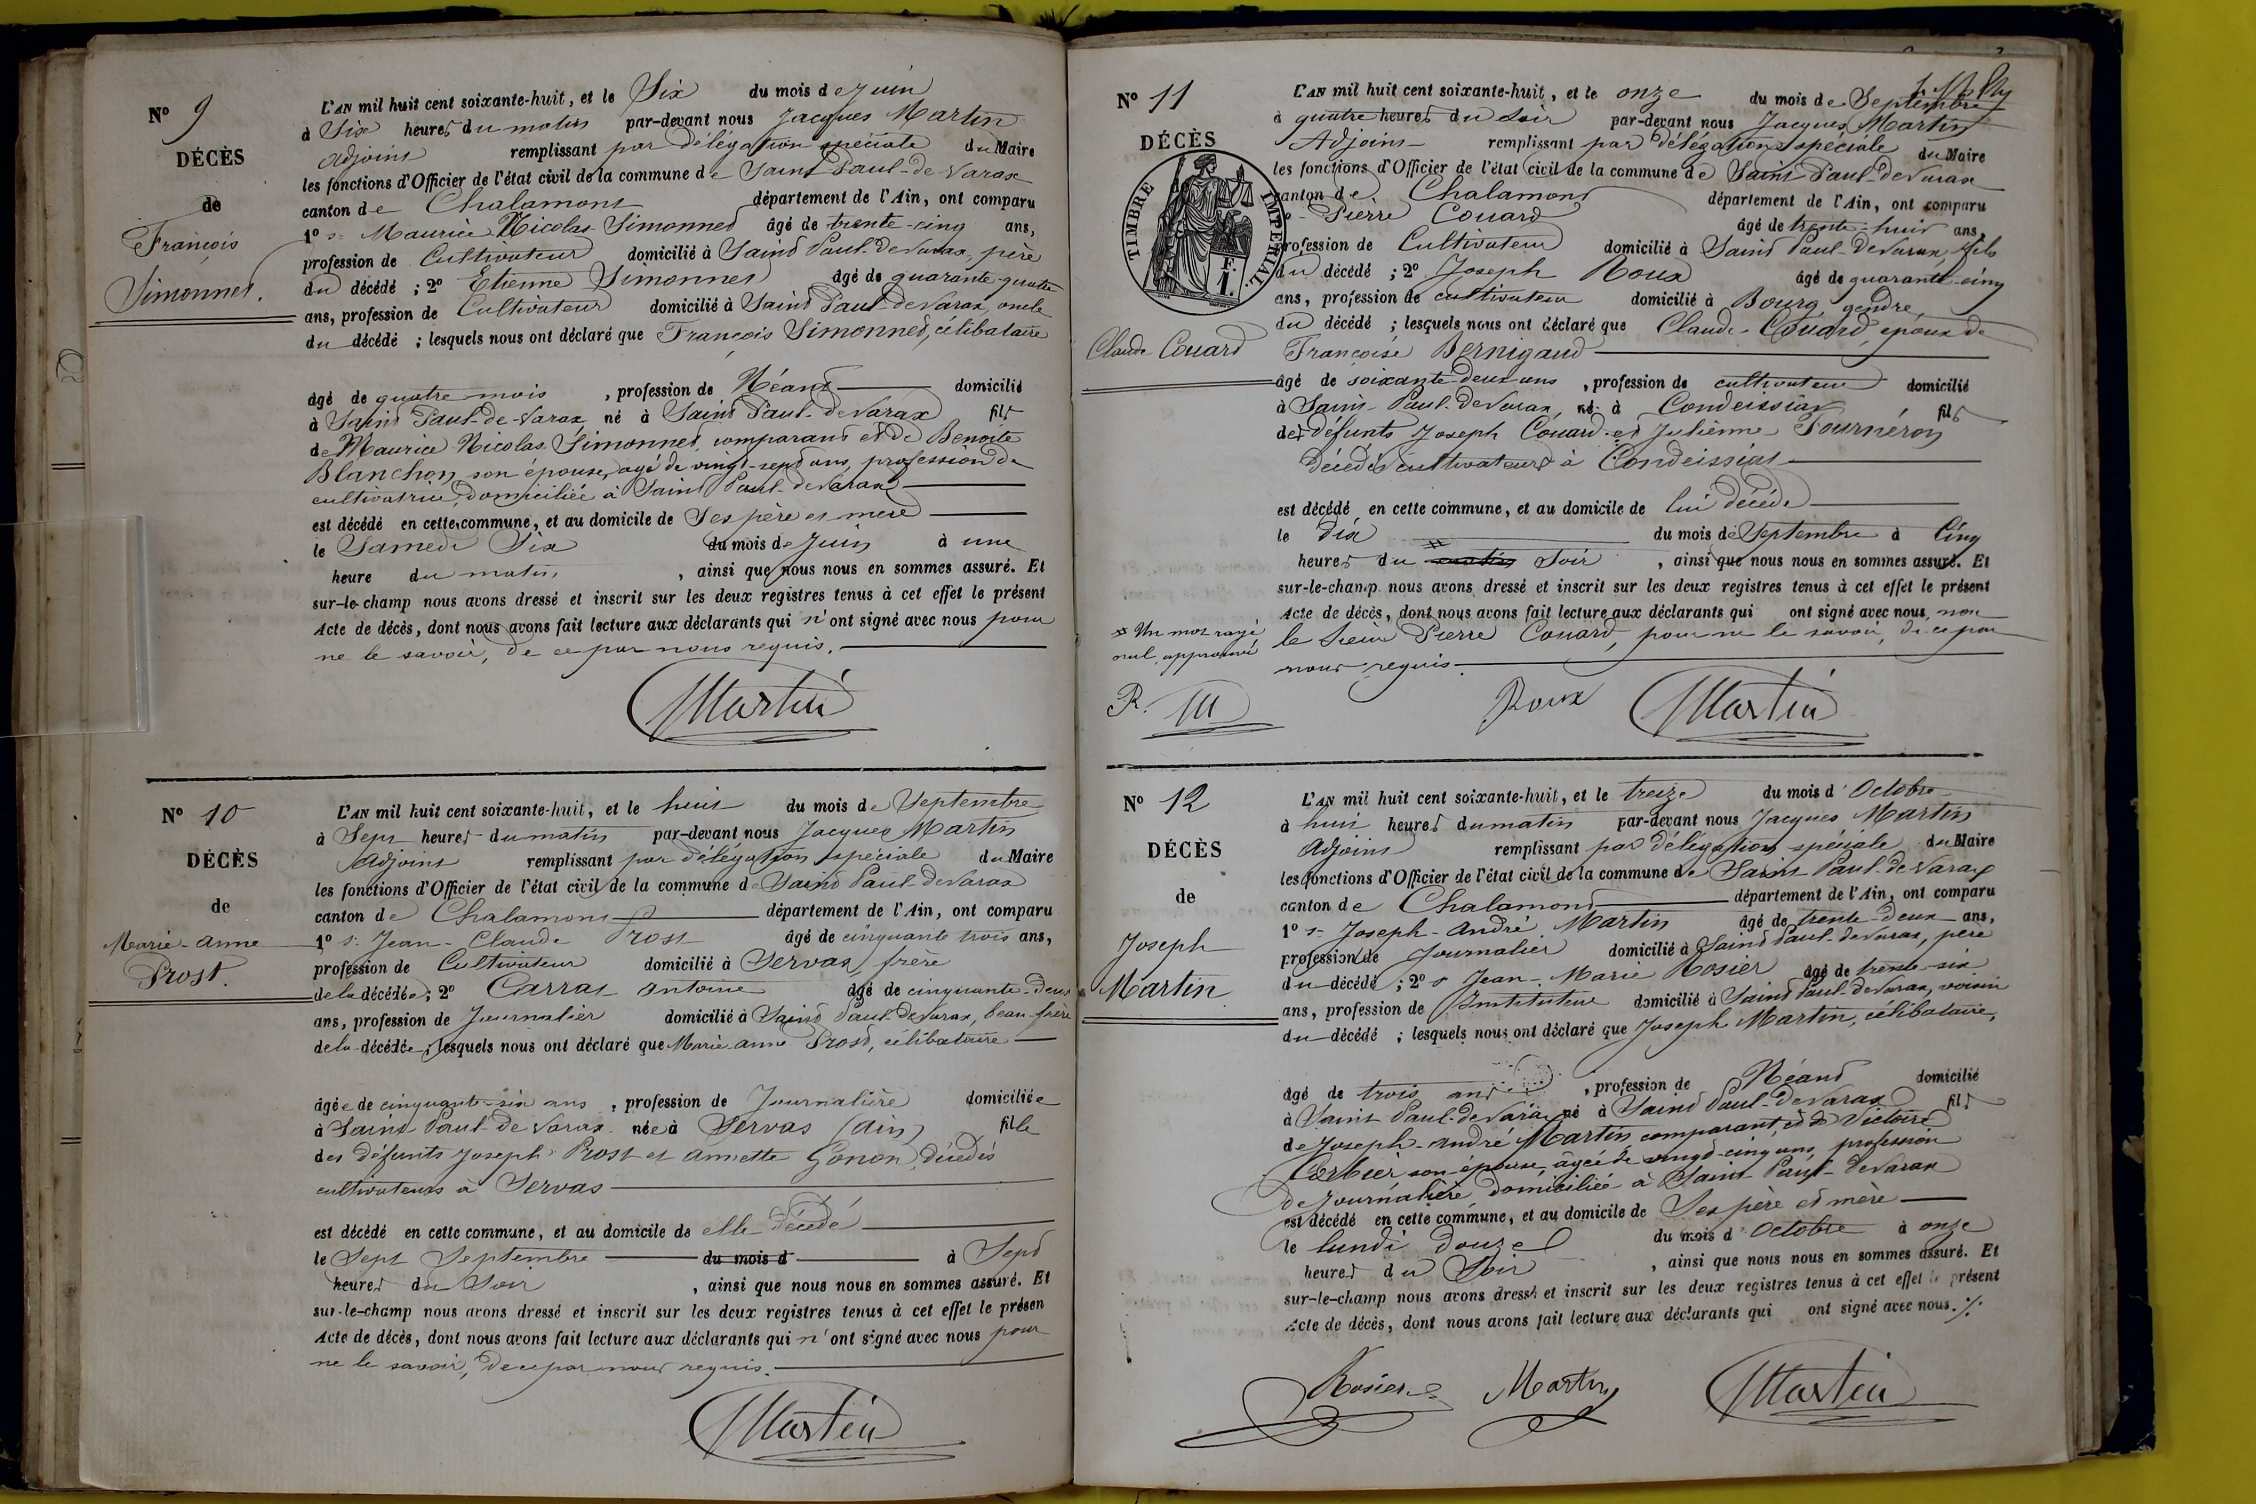 N° 9
DÉCÈS
de
François
Simonnet.
L'AN mil huit cent soixante-huit, et le Six du mois de juin
à Six heures du matin par-devant nous Jacques Martin
adjoint remplissant par délégation spéciale du Maire
les fonctions d'Officier de l'état civil de la commune de Saint Paul-de-Varax
canton de Chalamont département de l'Ain, ont comparu
1° s. Maurice Nicolas Simonnet âgé de trente-cinq ans,
profession de Cultivateur domicilié à Saint Paul-de Varax, père
du décédé ; 2° Etienne Simonnet âgé de quarante-quatre
ans, profession de Cultivateur domicilié à Saint Paul-de Varax, oncle
du décédé ; lesquels nous ont déclaré que François Simonnet, célibataire
âgé de quatre mois , profession de Néant domicilié
à Saint Paul-de-Varax né à Saint Paul-de Varax fils
de Maurice Nicolas Simonnet comparant et de Benoîte
Blanchon son épouse, agé de vingt-sept ans, profession de
cultivatrice, domiciliée à Saint Paul-de Varax
est décédé en cette commune, et au domicile de Ses père et mère
le Samedi Six du mois de Juin à une
heure du matin , ainsi que nous nous en sommes assuré. Et
sur-le-champ nous avons dressé et inscrit sur les deux registres tenus à cet effet le présent
Acte de décès, dont nous avons fait lecture aux déclarants qui n'ont signé avec nous pour
ne le savoir, de ce par nous requis.
Martin
N° 10
DÉCÈS
de
Marie-anne
Prost.
L'AN mil huit cent soixante-huit, et le huit du mois de Septembre
à Sept heures du matin par-devant nous Jacques Martin
adjoint remplissant par délégation spéciale du Maire
les fonctions d'Officier de l'état civil de la commune de Saint Paul-de Varax
canton de Chalamont département de l'Ain, ont comparu
1° s. Jean-Claude Prost âgé de cinquante trois ans,
profession de Cultivateur domicilié à Servas, frère
de la décédée ; 2° Carras antoine âgé de cinquante-deux
ans, profession de Journalier domicilié à Saint Paul-de Varax, beau-frère
de la décédée ; lesquels nous ont déclaré que Marie-anne Prost, célibataire
âgée de cinquante-six ans , profession de Journalière domiciliée
à Saint-Paul-de Varax née à Servas (ain) fille
des défunts Joseph Prost et annette Gonon, décédés
cultivateurs à Servas
est décédé en cette commune, et au domicile de elle décédé
le Sept Septembre du mois d à Sept
heures du Soir , ainsi que nous nous en sommes assuré. Et
sur-le-champ nous avons dressé et inscrit sur les deux registres tenus à cet effet le présen
Acte de décès, dont nous avons fait lecture aux déclarants qui n'ont signé avec nous pour
ne le savoir, de ce par nous requis.
Martin
N° 11
DÉCÈS
TIMBRE IMPERIAL
1 F.
Claude Couard
L'AN mil huit cent soixante-huit, et le onze du mois de Septembre
à quatre heures du soir par-devant nous Jacques Martin
Adjoint remplissant par délégation spéciale du Maire
les fonctions d'Officier de l'état civil de la commune de Saint Paul-de Varax
canton de Chalamont département de l'Ain, ont comparu
1° Pierre Couard âgé de trente-huit ans,
profession de Cultivateur domicilié à Saint Paul-de Varax, fils
du décédé ; 2° Joseph Roux âgé de quarante-cinq
ans, profession de cultivateur domicilié à Bourg, gendre,
du décédé ; lesquels nous ont déclaré que Claude Couard, époux de
Françoise Bernigaud
âgé de soixante-deux ans , profession de cultivateur domicilié
à Saint-Paul-de Varax, né à Condeissiat fils
des défunts Joseph Couard et Julienne Tournéron
décédés cultivateurs à Condeissiat
est décédé en cette commune, et au domicile de lui décédé
le dix du mois de Septembre à Cinq
heures du matin soir , ainsi que nous nous en sommes assuré. Et
sur-le-champ nous avons dressé et inscrit sur les deux registres tenus à cet effet le présent
Acte de décès, dont nous avons fait lecture aux déclarants qui ont signé avec nous, non
le sieur Pierre Couard, pour ne le savoir, de ce par
nous requis.
Un mot rayé
nul approuvé
R. M
Roux Martin
N° 12
DÉCÈS
de
Joseph
Martin
L'AN mil huit cent soixante-huit, et le treize du mois d'Octobre
à huit heures du matin par-devant nous Jacques Martin
Adjoint remplissant par délégation spéciale du Maire
les fonctions d'Officier de l'état civil de la commune de Saint Paul-de Varax
canton de Chalamont département de l'Ain, ont comparu
1° s. Joseph-André Martin âgé de trente-deux ans,
profession de Journalier domicilié à Saint Paul-de Varax, père
du décédé ; 2° s Jean-Marie Rosier âgé de trente-six
ans, profession de Instituteur domicilié à Saint Paul-de Varax, voisin
du décédé ; lesquels nous ont déclaré que Joseph Martin, célibataire,
âgé de trois ans , profession de Néant domicilié
à Saint Paul-de Varax né à Saint Paul-de Varax fils
de Joseph-André Martin comparant et de Victoire
Cerbier son épouse, âgée de vingt-cinq ans, profession
de Journalière, domiciliée à Saint Paul-de Varax
est décédé en cette commune, et au domicile de Ses père et mère
le lundi douze du mois d'Octobre à onze
heures du Soir , ainsi que nous nous en sommes assuré. Et
sur-le-champ nous avons dressé et inscrit sur les deux registres tenus à cet effet le présent
Acte de décès, dont nous avons fait lecture aux déclarants qui ont signé avec nous. ·/.
Rosier Martin Martin